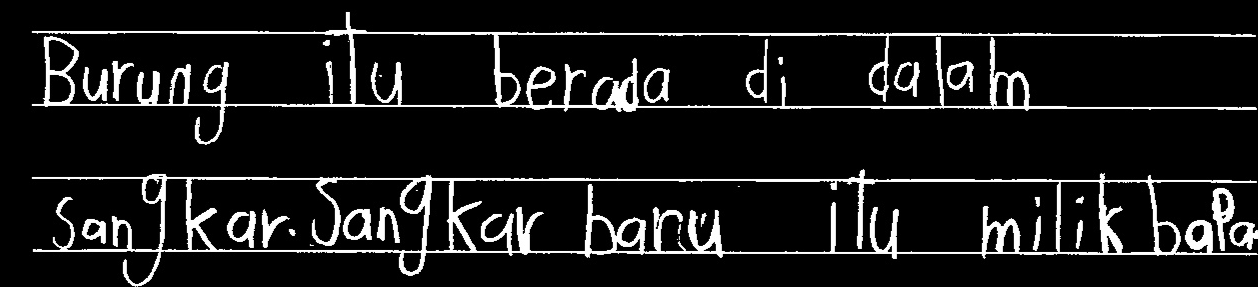 Burung itu berada di dalam
sangkar. Sangkar baru itu milik bapa